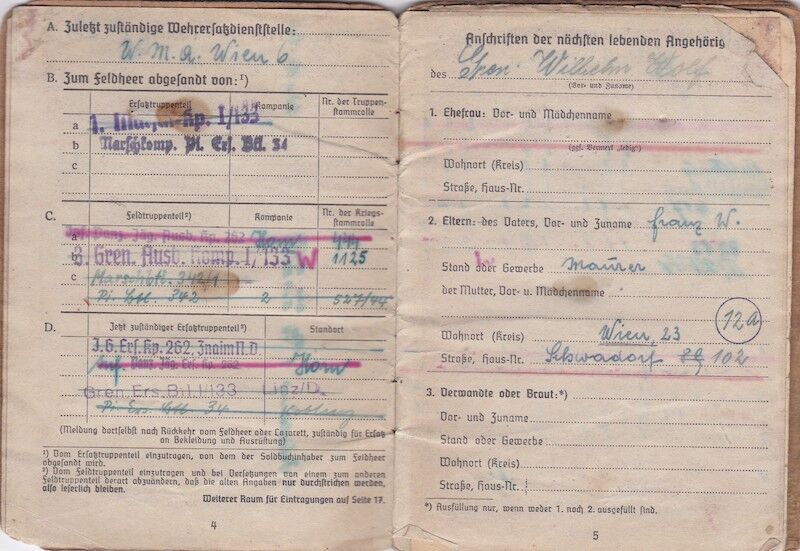 A. Zuletzt zuständige Wehrersatzdienststelle:
W. M. A. Wien 6
B. Zum Feldheer abgesandt von:¹)
Ersatztruppenteil Kompanie Nr. der Truppenstammrolle
a 1. Kp. I/133
b Marschkomp. Pi. Ers. Btl. 34
c
C. Feldtruppenteil²) Kompanie Nr. der Kriegsstammrolle
a Panz. Jäg. Ausb. Kp. 262
b 3. Gren. Ausb. Komp. I/133 W 1125
c Marschbtl. 342/1
Pi. Btl. 342 2 527/44
D. Jetzt zuständiger Ersatztruppenteil²) Standort
J. G. Ers. Kp. 262, Znaim N.D.
Panz. Jäg. Ers. Kp. 262 Horn
Gren. Ers. Btl. I/133 Linz/D.
Pi. Ers. Btl. 34
(Meldung dortselbst nach Rückkehr vom Feldheer oder Lazarett, zuständig für Ersatz
an Bekleidung und Ausrüstung)
¹) Vom Ersatztruppenteil einzutragen, von dem der Soldbuchinhaber zum Feldheer
abgesandt wird.
²) Vom Feldtruppenteil einzutragen und bei Versetzungen von einem zum anderen
Feldtruppenteil derart abzuändern, daß die alten Angaben nur durchstrichen werden,
also leserlich bleiben.
Weiterer Raum für Eintragungen auf Seite 17.
4
Anschriften der nächsten lebenden Angehörig
des Gren. Wilhelm
(Vor- und Zuname)
1. Ehefrau: Vor- und Mädchenname
(ggf. Vermerk „ledig“)
Wohnort (Kreis)
Straße, Haus-Nr.
2. Eltern: des Vaters, Vor- und Zuname Franz W.
Stand oder Gewerbe Maurer
der Mutter, Vor- u. Mädchenname
12a
Wohnort (Kreis) Wien, 23
Straße, Haus-Nr. Schwadorf 89 102
3. Verwandte oder Braut:*)
Vor- und Zuname
Stand oder Gewerbe
Wohnort (Kreis)
Straße, Haus-Nr.
*) Ausfüllung nur, wenn weder 1. noch 2. ausgefüllt sind.
5